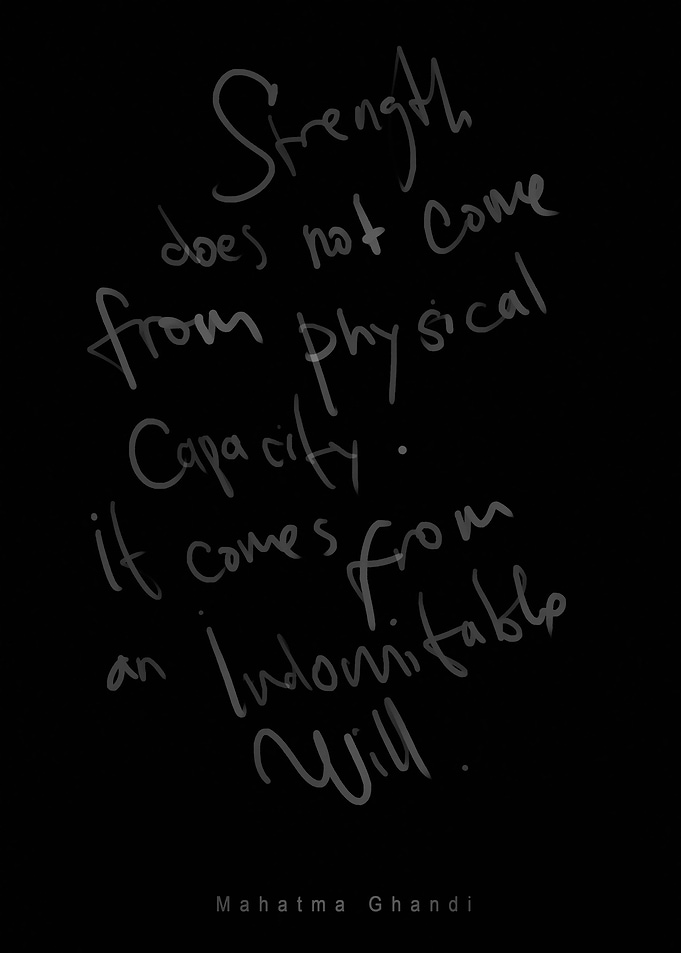 Strength
does not come
from physical
Capacity.
it comes from
an Indomitable
Will.
Mahatma Ghandi